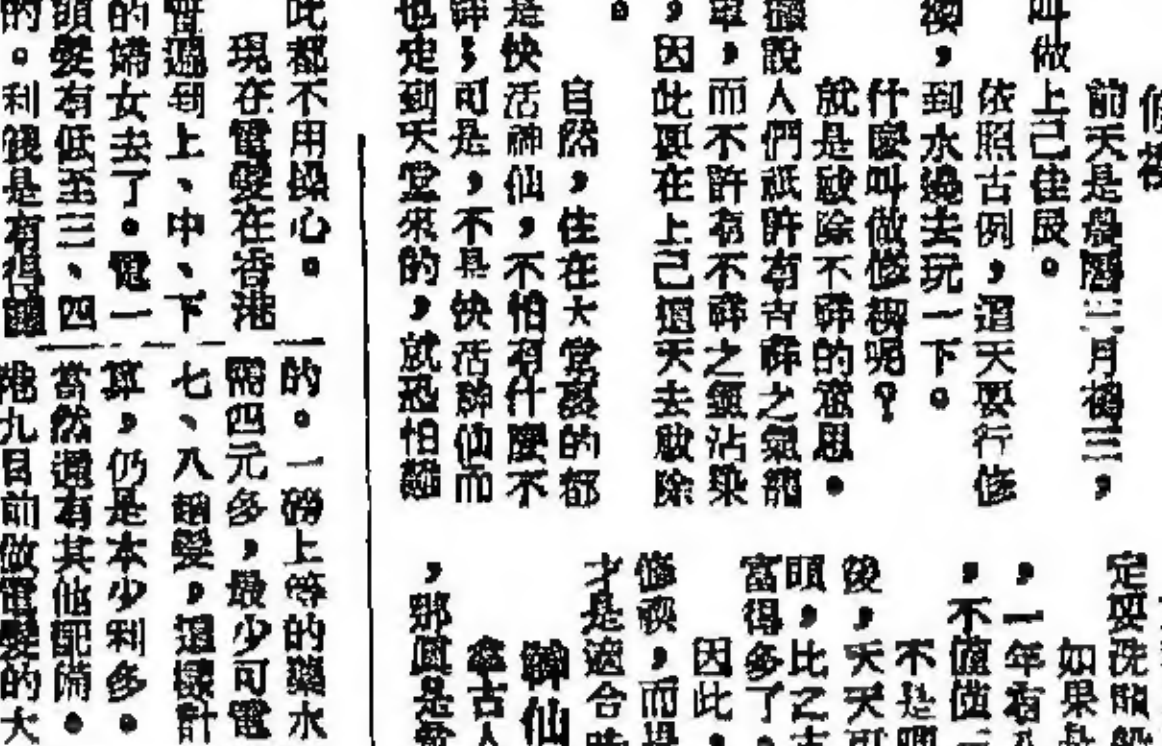 修禊
前天是農曆三月初三，
叫做上己佳辰。
依照古例，這天要行修
禊，到水邊去玩一下。
什麼叫做修禊呢？
就是祓除不祥的意思。
據說人們祇許有吉祥之氣籠
罩，而不許有不祥之氣沾染
，因此要在上己這天去祓除
。
自然，住在天堂裏的都
是快活神仙，不怕有什麼不
祥；可是，不是快活神仙而
也走到天堂來的，就恐怕難
定要洗頭
如果是
，一年有
，不值做
不是
後，天天可
頭，比之古
富得多了。
因此，
修禊，而是
才是適合時
神仙
拿古人
，那眞是
此都不用操心。
現在電髮在香港
普遍到上、中、下
的婦女去了。電一
頭髮有低至三、四
的。利錢是有得
的。一磅上等的藥水
需四元多，最少可電
七、八個髮，這樣計
算，仍是本少利多。
當然還有其他配備。
港九目前做電髮的大